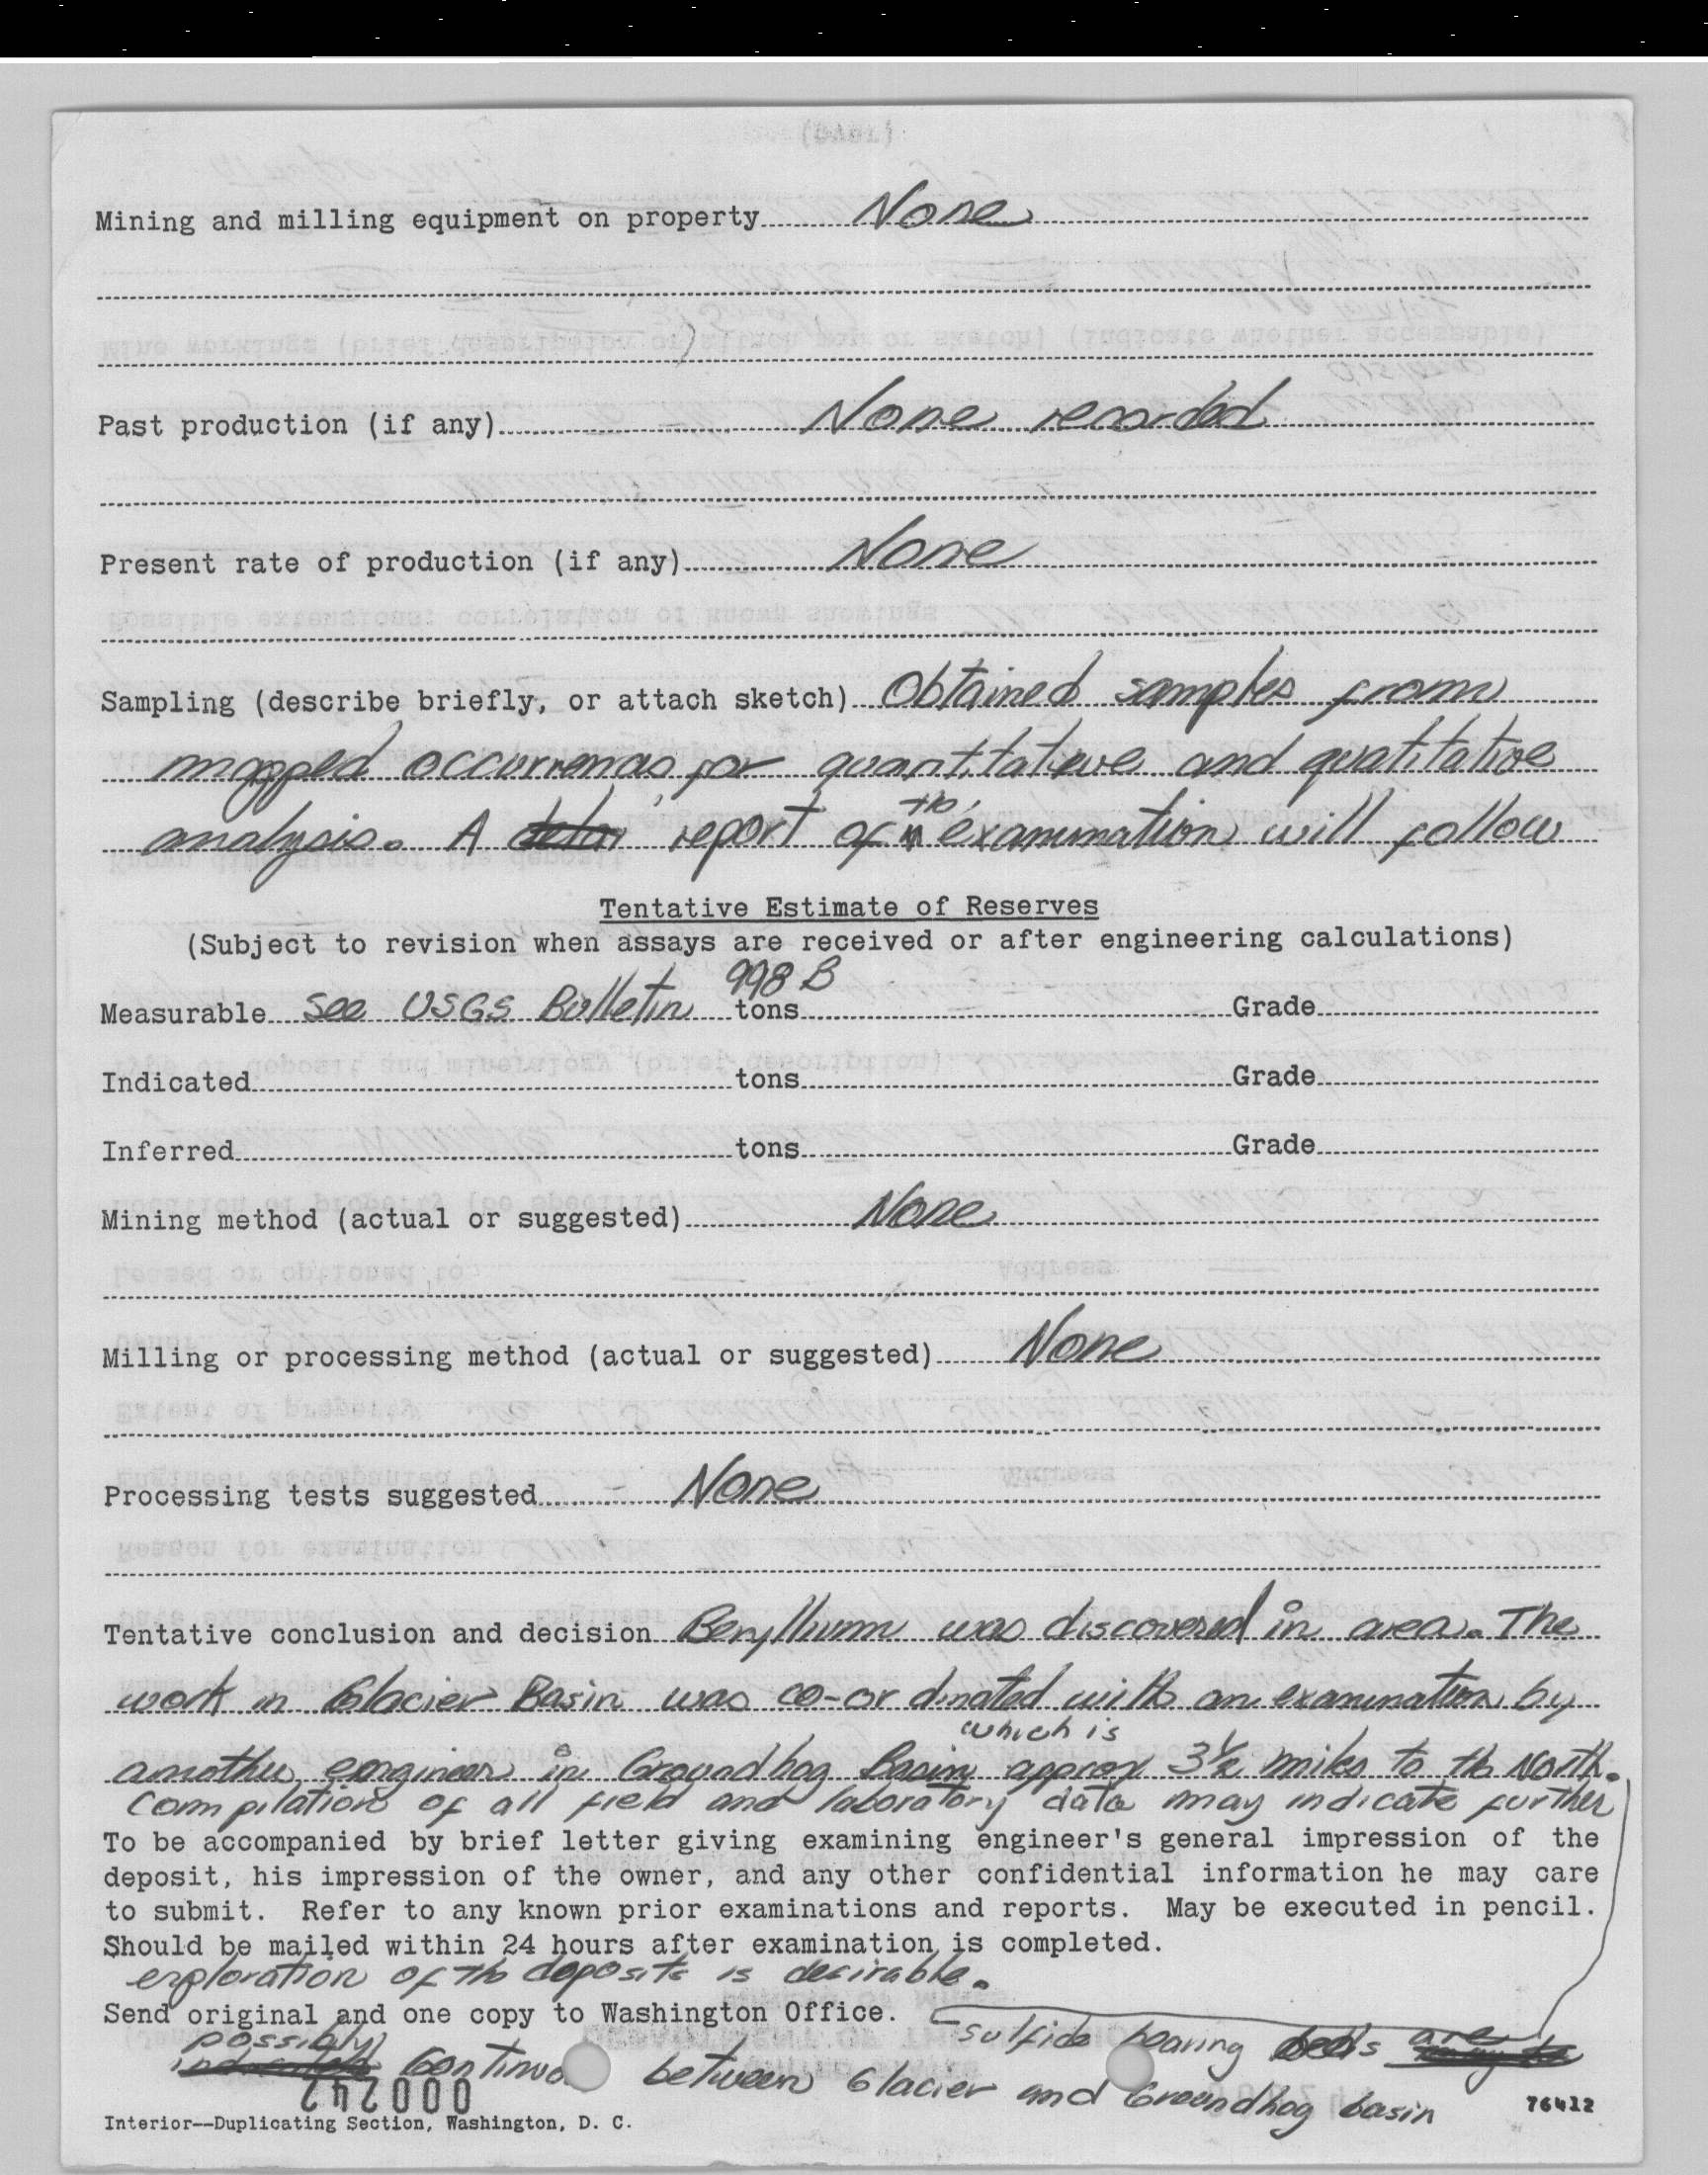 Mining and milling equipment on property None
Past production (if any) None recorded
Present rate of production (if any) None
Sampling (describe briefly, or attach sketch) Obtained samples from
mapped occurrences for quantitative and qualitative
analysis. A report of the examination will follow
Tentative Estimate of Reserves
(Subject to revision when assays are received or after engineering calculations)
998 B
Measurable See USGS Bulletin tons Grade
Indicated tons Grade
Inferred tons Grade
Mining method (actual or suggested) None
Milling or processing method (actual or suggested) None
Processing tests suggested None
Tentative conclusion and decision Beryllium was discovered in area. The
work in Glacier Basin was co-ordinated with an examination by
which is
another engineer in Groundhog Basin approx 3½ miles to the North.
Compilation of all field and laboratory data may indicate further
To be accompanied by brief letter giving examining engineer's general impression of the
deposit, his impression of the owner, and any other confidential information he may care
to submit. Refer to any known prior examinations and reports. May be executed in pencil.
Should be mailed within 24 hours after examination is completed.
exploration of the deposits is desirable.
Send original and one copy to Washington Office.
sulfide bearing beds are
possibly
between Glacier and Groundhog basin
000242
Interior--Duplicating Section, Washington, D. C.
76412